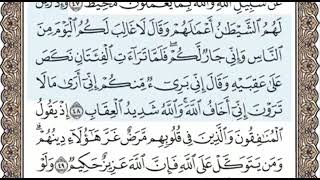 عَن سَبِيلِ ٱللَّهِ وَٱللَّهُ بِمَا يَعْمَلُونَ مُحِيطٌ ٤٧ وَإِذْ زَيَّنَ
لَهُمُ ٱلشَّيْطَٰنُ أَعْمَٰلَهُمْ وَقَالَ لَا غَالِبَ لَكُمُ ٱلْيَوْمَ مِنَ
ٱلنَّاسِ وَإِنِّي جَارٌ لَّكُمْ ۖ فَلَمَّا تَرَآءَتِ ٱلْفِئَتَانِ نَكَصَ
عَلَىٰ عَقِبَيْهِ وَقَالَ إِنِّي بَرِيٓءٌ مِّنكُمْ إِنِّيٓ أَرَىٰ مَا لَا
تَرَوْنَ إِنِّيٓ أَخَافُ ٱللَّهَ ۚ وَٱللَّهُ شَدِيدُ ٱلْعِقَابِ ٤٨ إِذْ يَقُولُ
ٱلْمُنَٰفِقُونَ وَٱلَّذِينَ فِي قُلُوبِهِم مَّرَضٌ غَرَّ هَٰٓؤُلَآءِ دِينُهُمْ ۗ
وَمَن يَتَوَكَّلْ عَلَى ٱللَّهِ فَإِنَّ ٱللَّهَ عَزِيزٌ حَكِيمٌ ٤٩ وَلَوْ